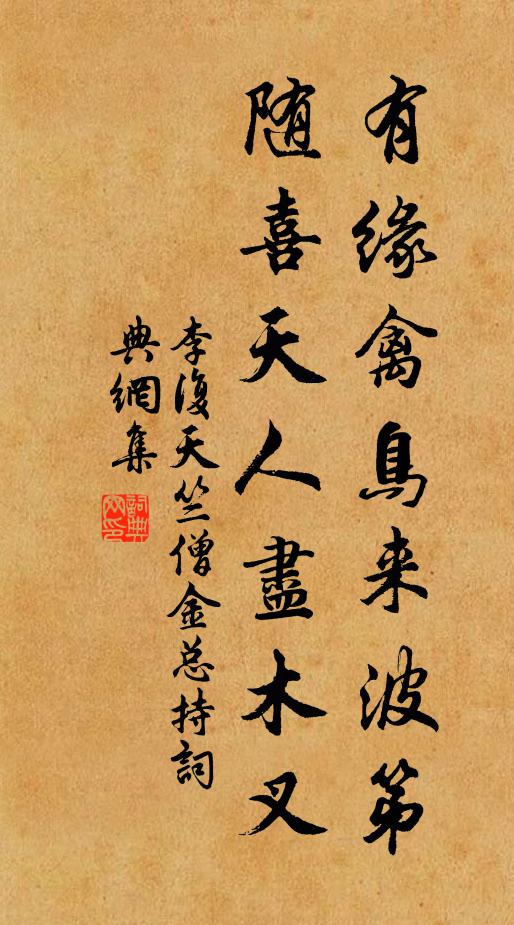 有缘禽鳥来波第
随喜天人盡木叉
李復天竺僧金总持詞
典網集
詞典網印